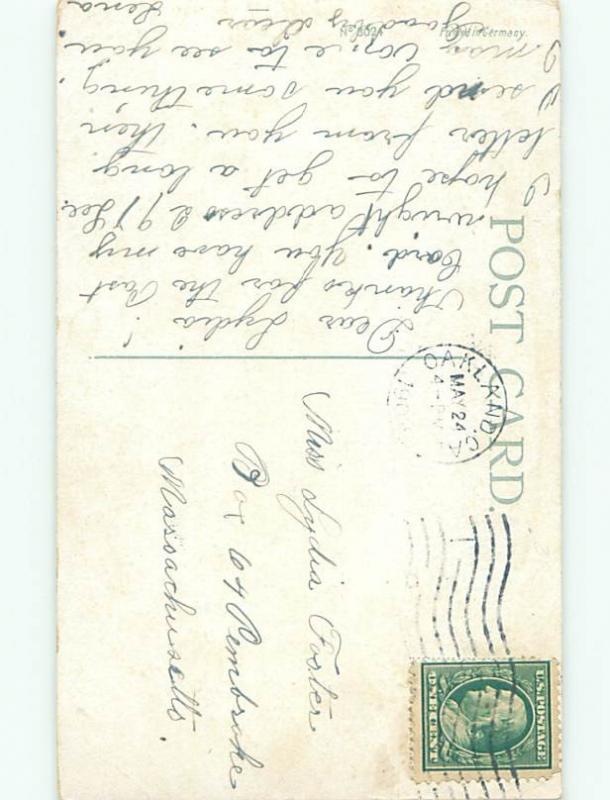 Dear Lydia
Thanks for the Post
Card. You have my
wright address 291 Lee.
I hope to get a long
letter from you. then
I send you something.
I may come to see you
goodby dear
Lena
No 302A
Printed in Germany.
POST CARD.
OAKLAND
MAY 24
4-PM
Miss Lydia Foster
Box 64 Pembroke
Massachusetts.
U.S. POSTAGE
ONE CENT